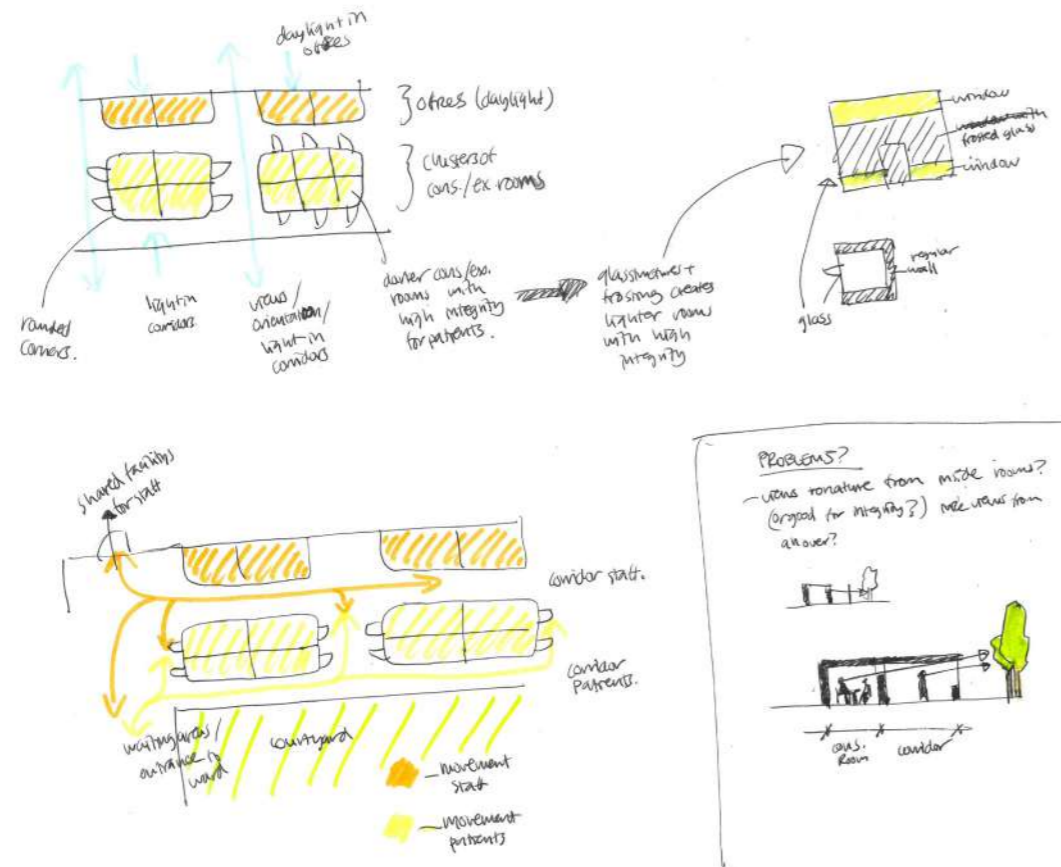 daylight in
offices
offices (daylight)
clusters of
cons./ex rooms
rounded
corners.
light in
corridors
views/
orientation/
light in
corridors
darker cons/ex.
rooms with
high integrity
for patients.
glass
frosting creates
lighter rooms
with high
integrity
window
frosted glass
window
regular
wall
glass
shared facilitys
for staff
corridor staff.
corridor
patients.
waiting areas/
entrance to
ward
courtyard
movement
staff
movement
patients
PROBLEMS?
- views to nature from inside rooms?
(or good for integrity?) nice views from
all over?
cons.
Room
corridor